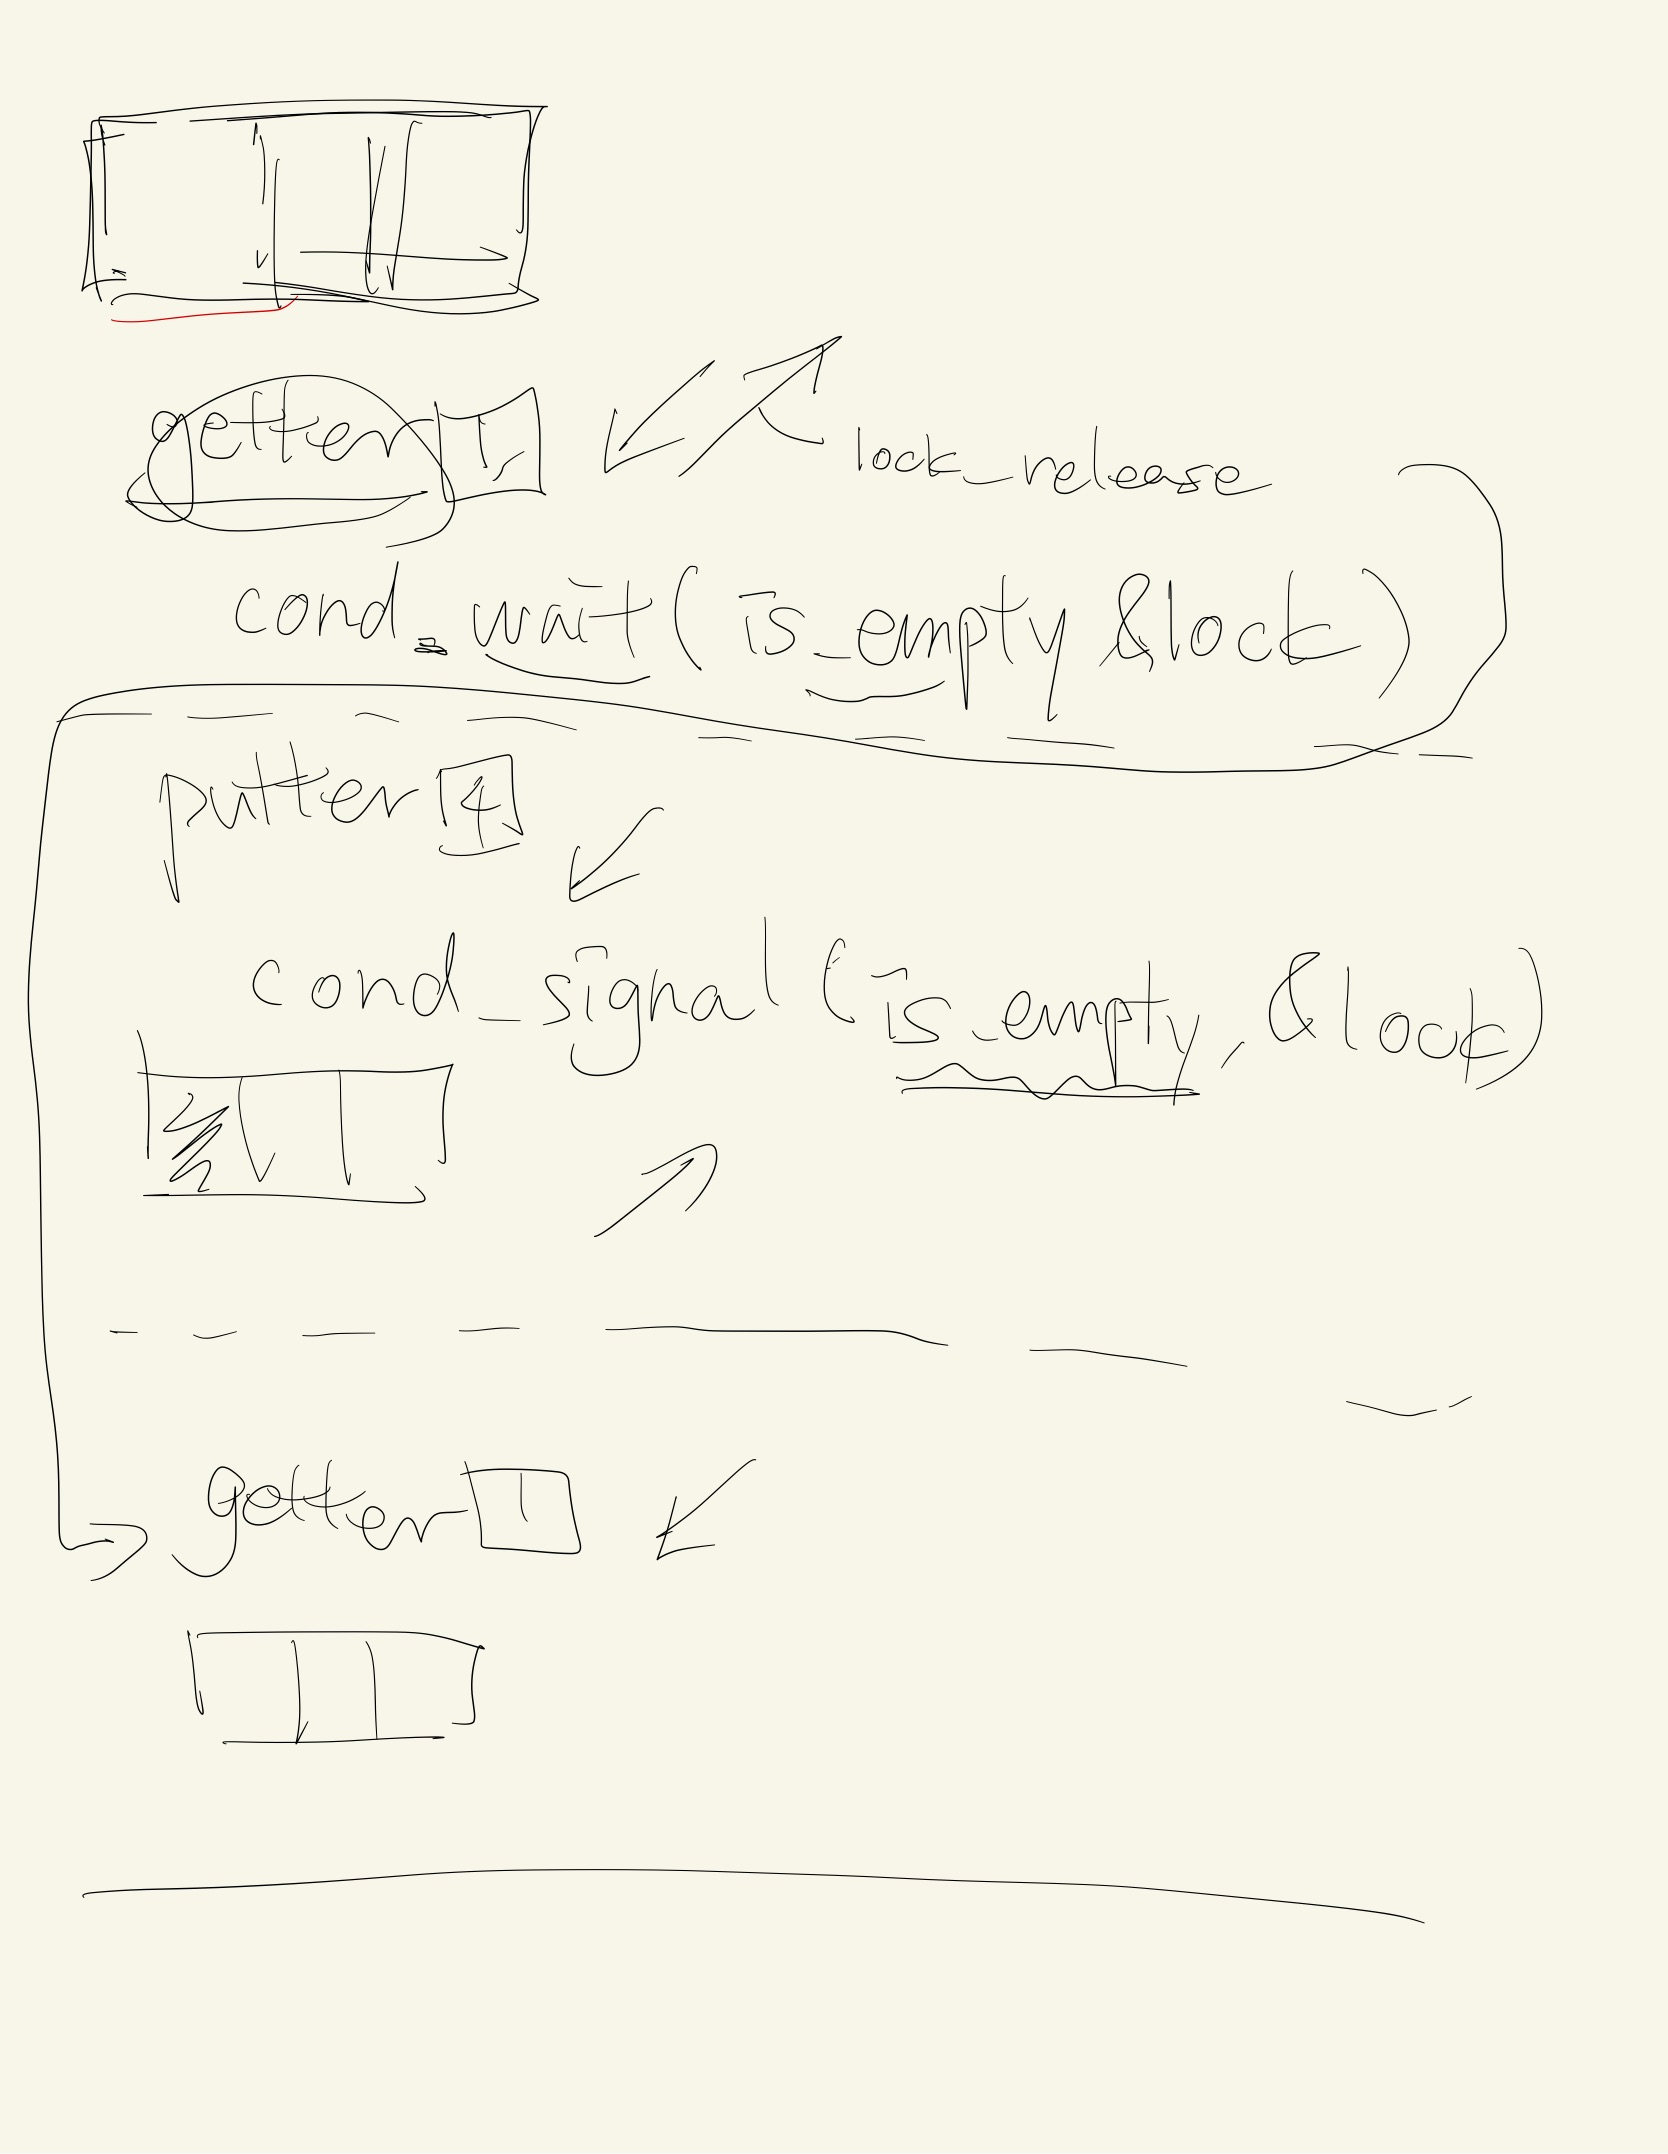 getter 1
lock_release
cond_wait( is_empty &lock )
putter 4
cond_signal ( is_empty, &lock )
getter 1